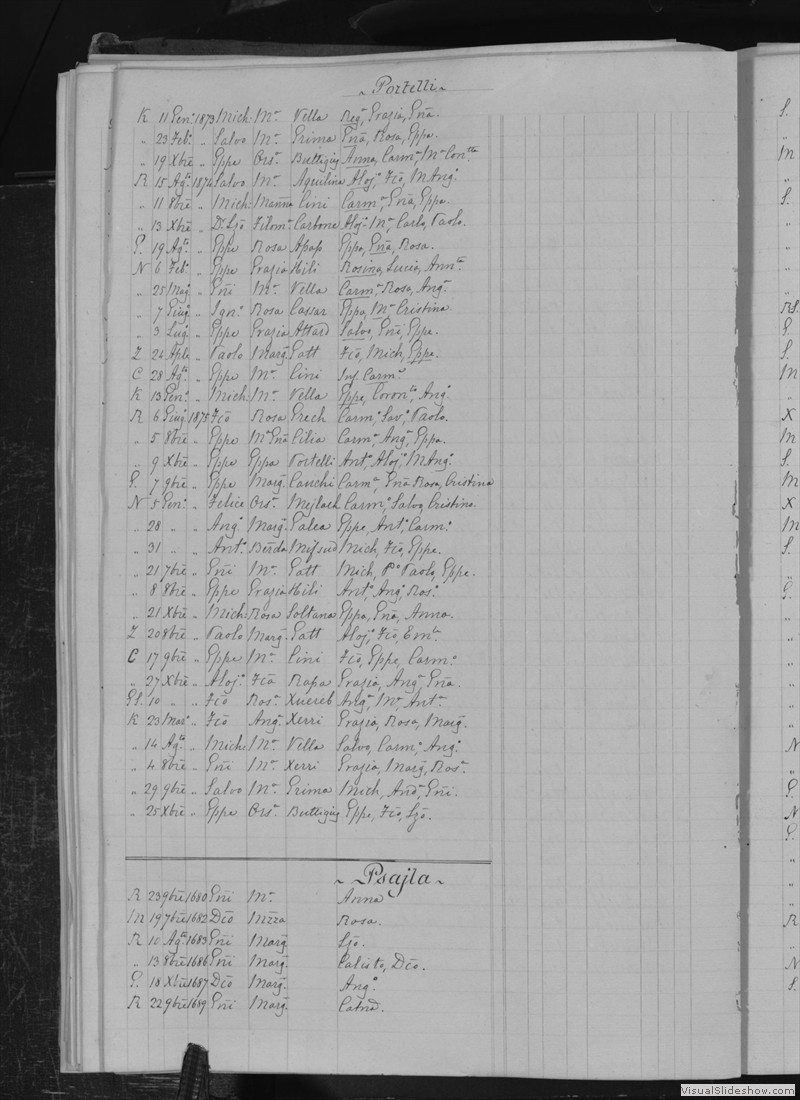 ~ Portelli ~
K 11 Gen: 1873 Mich: Mᵃ Vella Reg,ᵃ Grazia, Gña.
„ 23 Feb: „ Salvo Mᵃ Grima Gña, Rosa, Eppa.
„ 19 Xbre „ Eppe Orsᵃ Buttigieg Anna, Carm,ᵃ Mᵃ Contᵗᵃ
R 15 Agᵒ 1874 Salvo Mᵃ Aquilina Aloj,ᵒ Fcõ, M Ang.ᵃ
„ 11 8bre „ Mich: Manna Cini Carm,ᵃ Gña, Eppa.
„ 13 Xbre „ Dʳ Ljõ Filomᵃ Carbone Aloj,ᵒ Mᵃ, Carlo, Paolo.
G. 19 Agᵒ „ Eppe Rosa Apap Eppa, Gña, Rosa.
N 6 Feb: „ Eppe Grazia Hili Rosina, Lucia, Annᵗᵃ
„ 25 Mag. „ Gñi Mᵃ Vella Carm,ᵃ Rosa, Ang.ᵃ
„ 7 Giug. „ Ign.ᵒ Rosa Cassar Eppa, Mᵃ Cristina.
„ 3 Lug. „ Eppe Grazia Attard Salvo, Gñi, Eppe.
Z 24 Aple „ Paolo Marg. Gatt Fcõ, Mich, Eppa.
C 28 Agᵒ „ Eppe Mᵃ Cini Inf. Carmᵃ
K 13 Gen: „ Mich: Mᵃ Vella Eppe, Coronᵗᵃ, Ang.ᵃ
R 6 Giug. 1875 Fcõ Rosa Grech Carm,ᵒ Sav,ᵒ Paolo.
„ 5 8bre „ Eppe Mᵃ Gña Cilia Carm,ᵃ Ang,ᵃ Eppa.
„ 9 Xbre „ Eppe Eppa Portelli Ant,ᵒ Aloj,ᵒ M Ang.ᵒ
G. 7 9bre „ Eppe Marg. Cauchi Carmᵃ, Gña Rosa, Cristina
N 5 Gen: „ Felice Orsᵃ Mejlack Carm,ᵒ Salvo, Cristina.
„ 28 „ „ Ang.ᵒ Marg. Galea Eppe, Ant,ᵒ Carm.ᵒ
„ 31 „ „ Antᵒ Berda Mifsud Mich, Fcõ, Eppe.
„ 21 7bre „ Gñi Mᵃ Gatt Mich, Pᵒ Paolo, Eppe.
„ 8 8bre „ Eppe Grazia Hili Ant,ᵒ Ang,ᵒ Ros.ᵒ
„ 21 Xbre „ Mich: Rosa Soltana Eppa, Gña, Anna.
Z 20 8bre „ Paolo Marg. Gatt Aloj,ᵒ Fcõ, Emˡᵒ
C 17 9bre „ Eppe Mᵃ Cini Fcõ, Eppe, Carm.ᵒ
„ 27 Xbre „ Aloj.ᵒ Fcã Rapa Grazia, Ang,ᵃ Gña.
GS. 10 „ „ Fcõ Ros.ᵃ Xuereb Ang,ᵃ Mᵃ Ant.ᵃ
K 23 Marᵒ „ Fcõ Ang.ᵃ Xerri Grazia, Rosa, Marg.
„ 14 Agᵒ „ Mich: Mᵃ Vella Salvo, Carm,ᵒ Ang.ᵒ
„ 4 8bre „ Gñi Mᵃ Xerri Grazia, Marg, Ros.ᵃ
„ 29 9bre „ Salvo Mᵃ Grima Mich, And,ᵃ Gñi.
„ 25 Xbre „ Eppe Orsᵃ Buttigieg Eppe, Fcõ, Ljõ.
~ Psajla ~
R 23 9bre 1680 Gñi Mᵃ Anna
M 19 7bre 1682 Dcõ Nizza Rosa.
R 10 Agᵒ 1683 Gñi Marg. Ljõ.
„ 13 8bre 1686 Gñi Marg. Calcito, Dcõ.
G. 18 Xbre 1687 Dcõ Marg. Ang.ᵒ
R 22 9bre 1689 Gñi Marg. Catnã.
VisualSlideshow.com